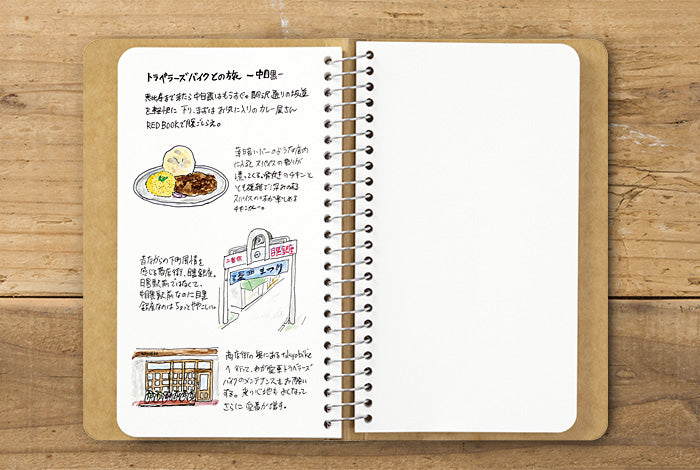 トラベラーズバイクとの旅 ー中目黒ー
恵比寿まで来たら中目黒はもうすぐ。駒沢通りの坂道
を軽快に下り、まずはお気に入りのカレー屋さん
RED BOOKで腹ごしらえ。
薄暗いバーのような店内
に入ると スパイスの香りが
漂ってくる。骨付きのチキンと
とても複雑で深みのある
スパイスの味が楽しめる
チキンカレー。
昔ながらの下町風情を
感じる商店街、目黒銀座。
目黒駅前ではなくて、
中目黒駅前なのに目黒
銀座なのはちょっとややこしい。
二番街 目黒銀座
まつり
商店街の奥にあるtokyobike
へ行って、わが愛車トラベラーズ
バイクのメンテナンスもお願い
する。乗り心地もよくなって
さらに愛着が増す。